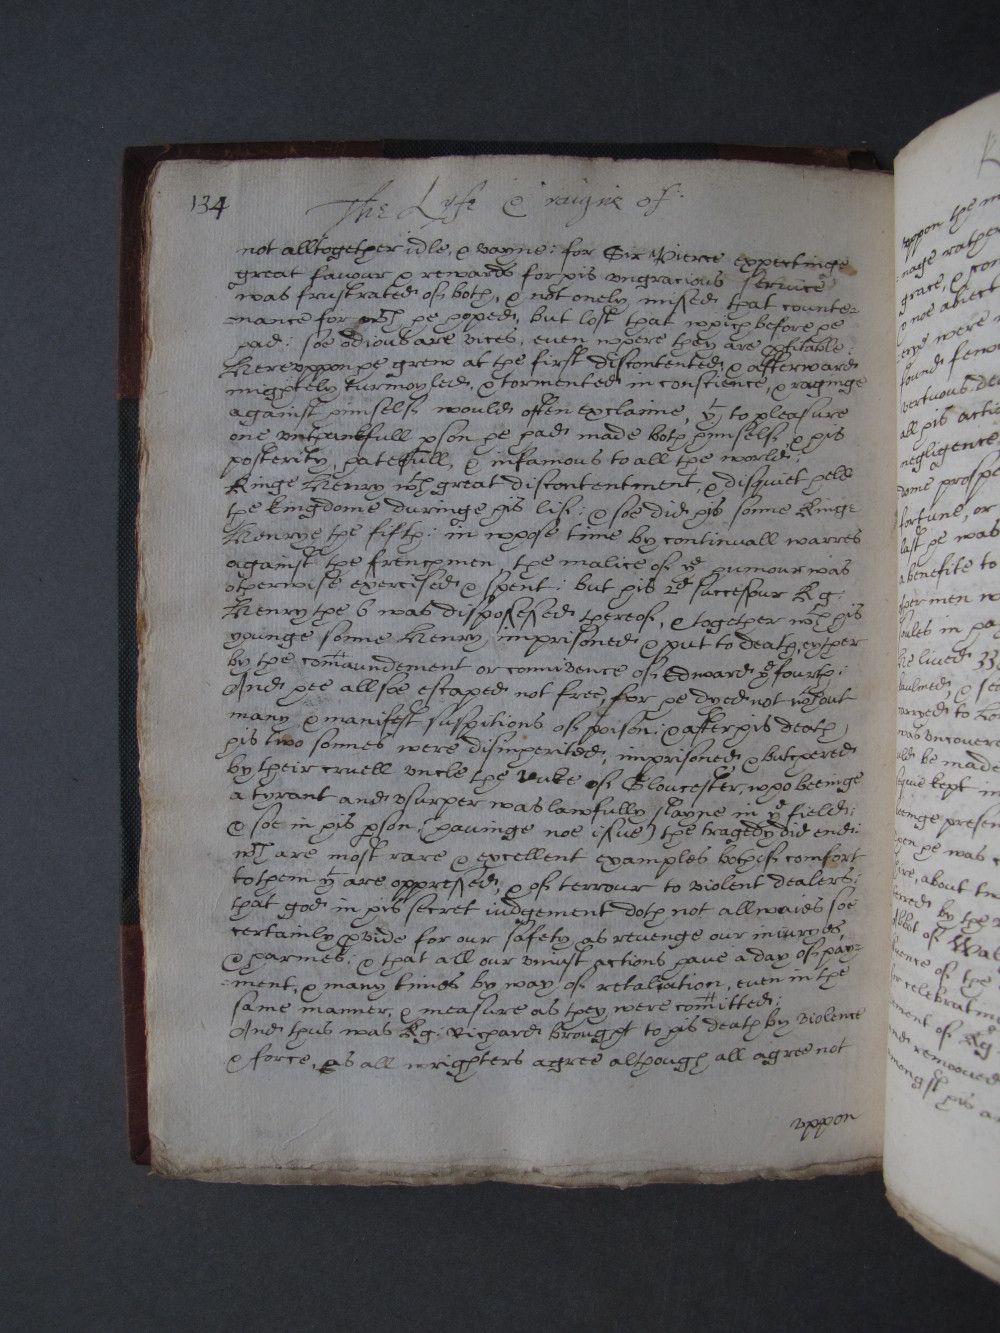 134
The Lyfe & raigne of:
not alltogether idle, & vayne: for Sir Pierce expectinge
great favour & rewards for his ungracious service
was frustrated of both, & not onely missed that counte=
=nance for wch he hoped, but lost that which before he
had: soe odious are vices, even where they are profitable:
Hereuppon he grew at the first discontented, & afterward
mightely turmoyled, & tormented in conscience, & raginge
against himself would often exclaime, yt to pleasure
one unthankfull pson he had made both himself & his
posterity, hatefull, & infamous to all the world:
Kinge Henry wth great discontentment, & disquiet held
the kingdome duringe his lif: & soe did his sonne Kinge
Henrye the fifth: in whose time by continuall warres
against the frenchmen, the malice of ye humour was
otherwise exercised & spent: but his 2d successur Kg:
Henry the 6 was dispossessed thereof, & together wth his
younge sonne Henry, imprisoned & put to death, eyther
by the comaundement or connivence of Edward ye fourth:
And hee allsoe escaped not free, for he dyed not wthout
many & manifest suspitions of poison: & after his death
his two sonnes were disinherited, imprisoned & butchered
by their cruell uncle the Duke of Gloucester, who beeinge
a tyrant and usurper was lawfully slayne in ye field:
& soe in his pson (havinge noe issue) the tragedy did end:
wch are most rare & excellent examples both of comfort
to them yt are oppressed, & of terrour to violent dealers:
that god in his secret iudgement doth not allwaies soe
certainly pvide for our safety, as revenge our iniuryes,
& harmes: & that all our uniust actions have a day of pay=
=ment, & many times by way of retaliation, even in the
same manner, & measure as they were comitted:
And thus was Kg: Richard brought to his death by violence
& force, as all wrighters agree although all agree not
uppon
uppon the
=nage rather
grace, & 
found
vertuous
all his
negligence
fortune, or
last he was
a benefite to
men
in
He lived 33
&
to
was uncovered
be made
kept in
he was
about
by the
of
of the
of Kg
removed
amongst his